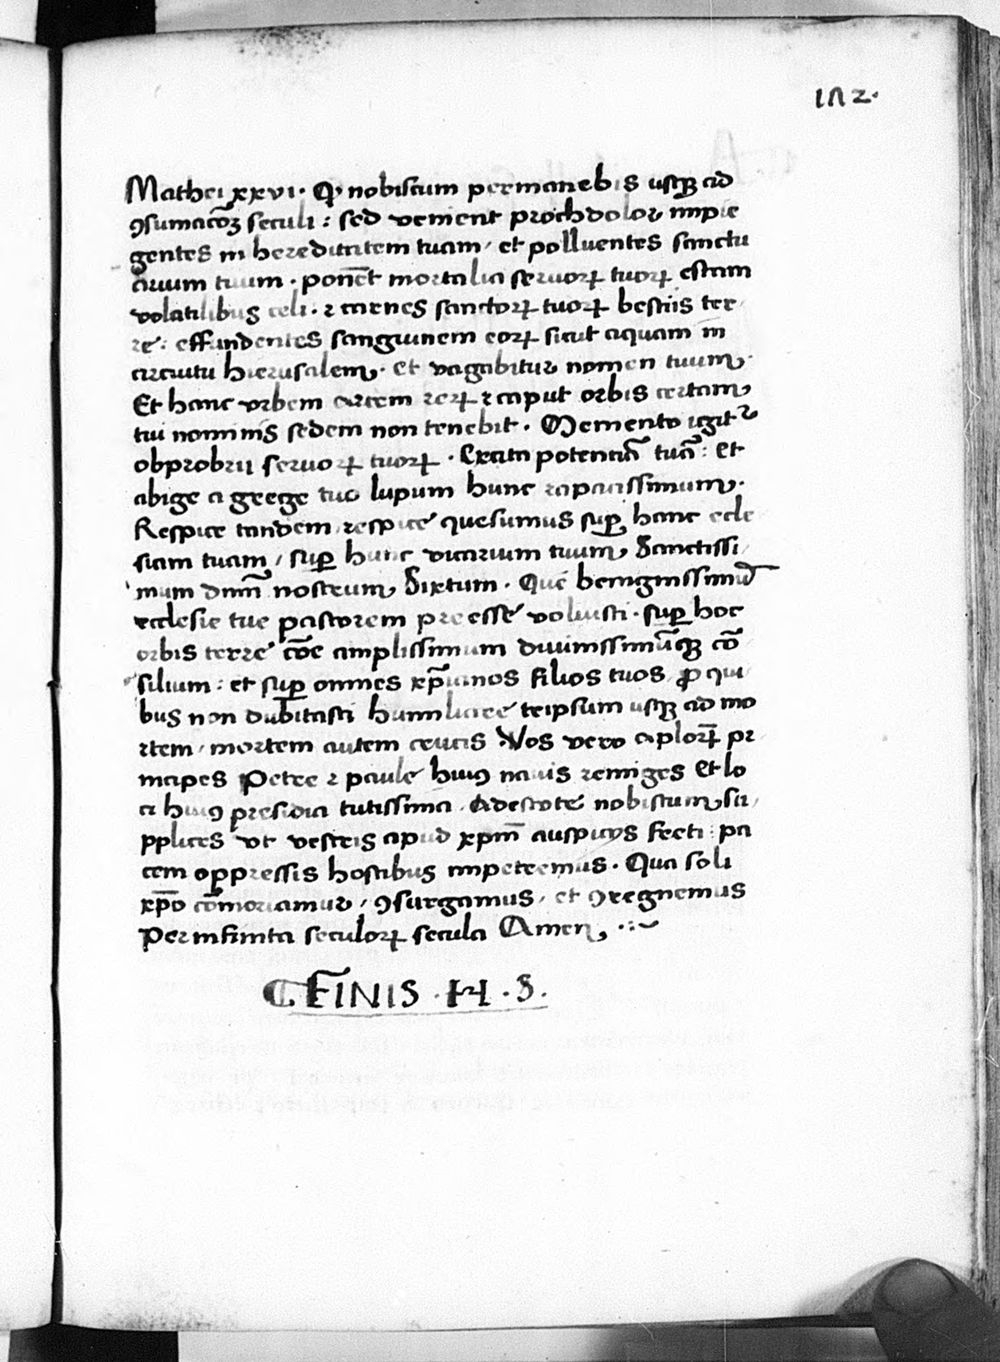 1Λ2.
Mathei xxvi. Q̛ nobiscum permanebis usqꝫ ad
ꝯsumacõꝫ seculi: sed venient prochdolor impie
gentes in hereditatem tuam, et polluentes sanctu
arium tuum. ponẽt mortalia seruoꝝ tuoꝝ escam
volatilibus celi. ⁊ carnes sanctoꝝ tuoꝝ bestiis ter
re: effundentes sanguinem eoꝝ sicut aquam in
circuitu hierusalem. et vagabitur nomen tuum.
Et hanc vrbem arcem reꝝ ⁊ caput orbis certam
tui nominis sedem non tenebit. Memento igitr
obprobrii seruoꝝ tuoꝝ. Excita potentiã tuã: et
abige a grege tuo lupum hunc rapacissimum.
Respice tandem respice quesumus suꝑ hanc ecle
siam tuam, suꝑ hunc vicarium tuum, Sanctissi
mum dnm̃ nostrum Sixtum. Quẽ benignissimũ
ecclesie tue pastorem preesse voluisti. suꝑ hoc
orbis terre cõe amplissimum diuinissimũqꝫ cõ
silium: et suꝑ omnes xp̃ianos filios tuos, ꝓ qui
bus non dubitasti humiliare teipsum usqꝫ ad mo
rtem, mortem autem crucis Vos vero aploꝝ̃ pr
incipes Petre ⁊ paule huiꝯ nauis remiges et lo
ci huiꝯ presidia tutissima. Adestote nobiscum su
pplices vt vestris apud xpm̃ auspiciis fecti: pa
cem oppressis hostibus impetremus. Qua soli
xp̃o cõmoriamur, ꝯsurgamus, et ꝯregnemus
Per infinita seculoꝝ secula Amen,
FINIS . H . S .